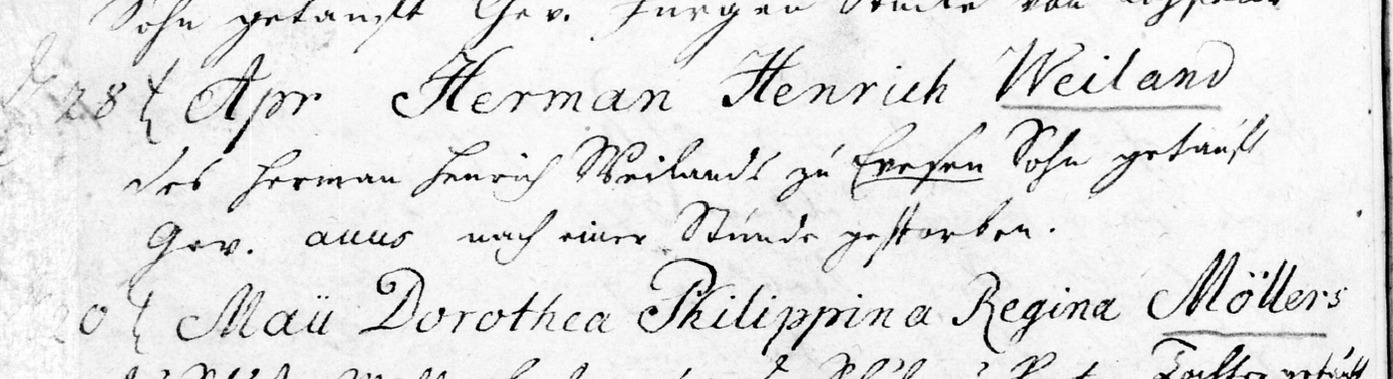 Sohn getaufft Gev. Jürgen von
28 t Apr Herman Henrich Weiland
des Herman Henrich Weilands zu Evesen Sohn getaufft
Gev. avus nach einer Stunde gestorben.
0 t Maÿ Dorothea Philippina Regina Möllers
Tochter getaufft